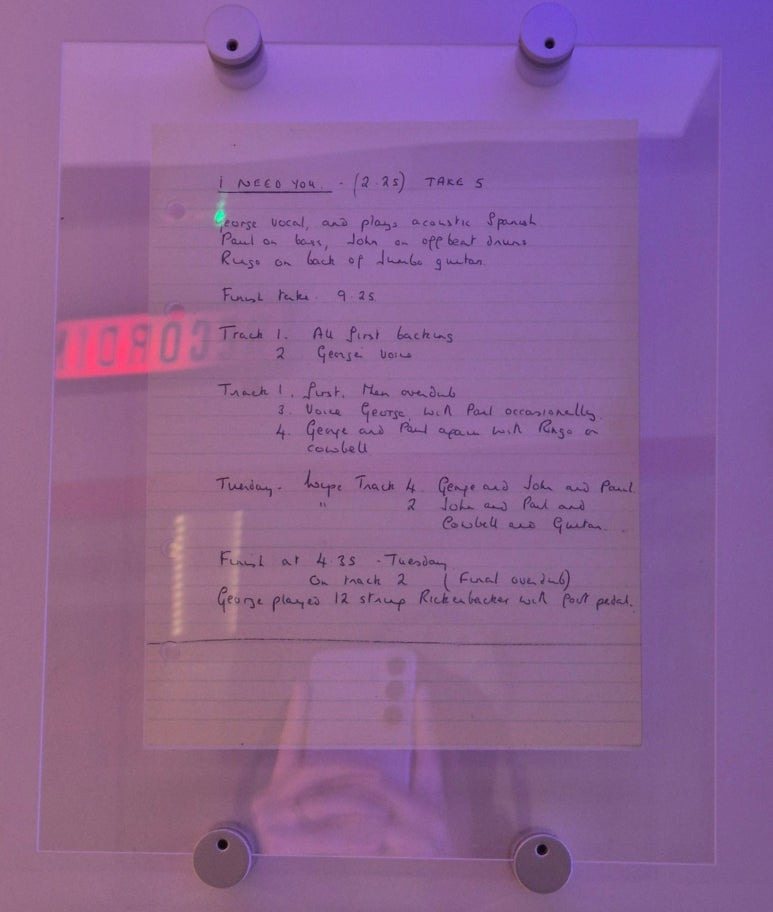 I NEED YOU. - (2.25) TAKE 5
George vocal, and plays acoustic Spanish
Paul on bass, John on off beat drums
Ringo on back of Jumbo guitar.
Finish take. 9.25
Track 1. All first backing
2 George voice
Track 1. first. Then overdub
3. Voice George, with Paul occasionally.
4. George and Paul again with Ringo on
cowbell
Tuesday - Wipe Track 4. George and John and Paul.
" 2 John and Paul and
Cowbell and Guitar.
Finish at 4.35 - Tuesday
On track 2 (Final overdub)
George played 12 string Rickenbacker with foot pedal.
CORDIN